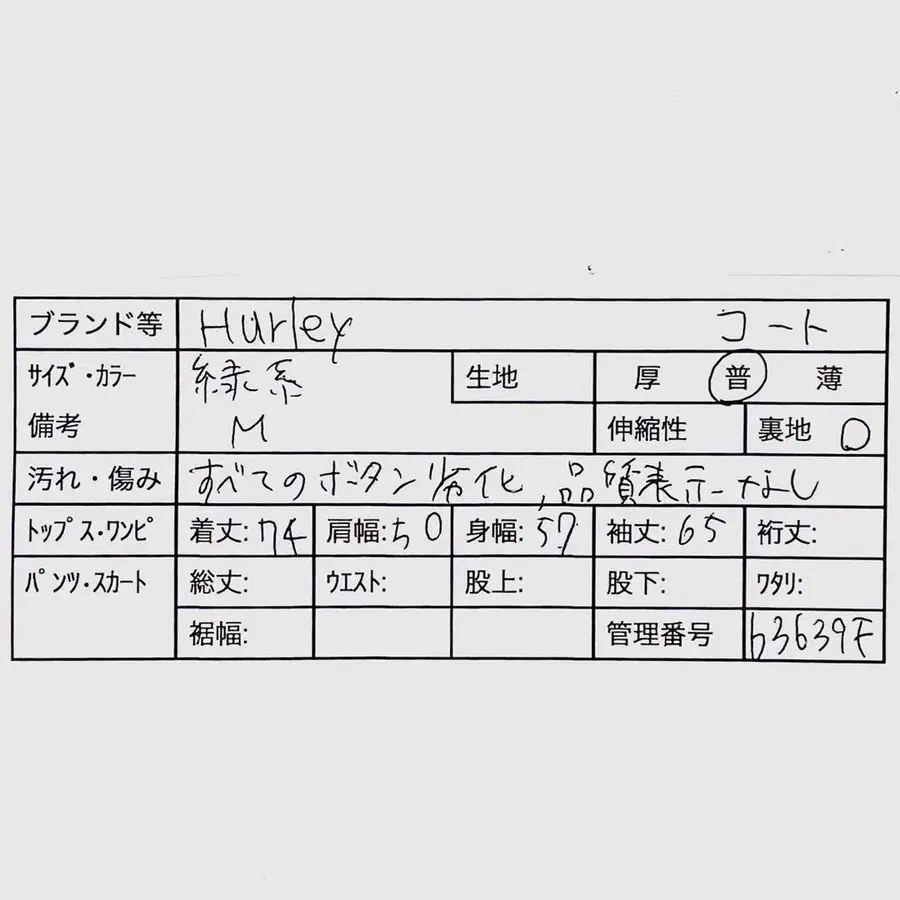 ブランド等 Hurley コート
サイズ・カラー 緑系 生地 厚 普 薄
備考 M 伸縮性 裏地 ○
汚れ・傷み すべてのボタン劣化、品質表示なし
トップス・ワンピ 着丈:74 肩幅:50 身幅:57 袖丈:65 裄丈:
パンツ・スカート 総丈: ウエスト: 股上: 股下: ワタリ:
裾幅: 管理番号 63639F